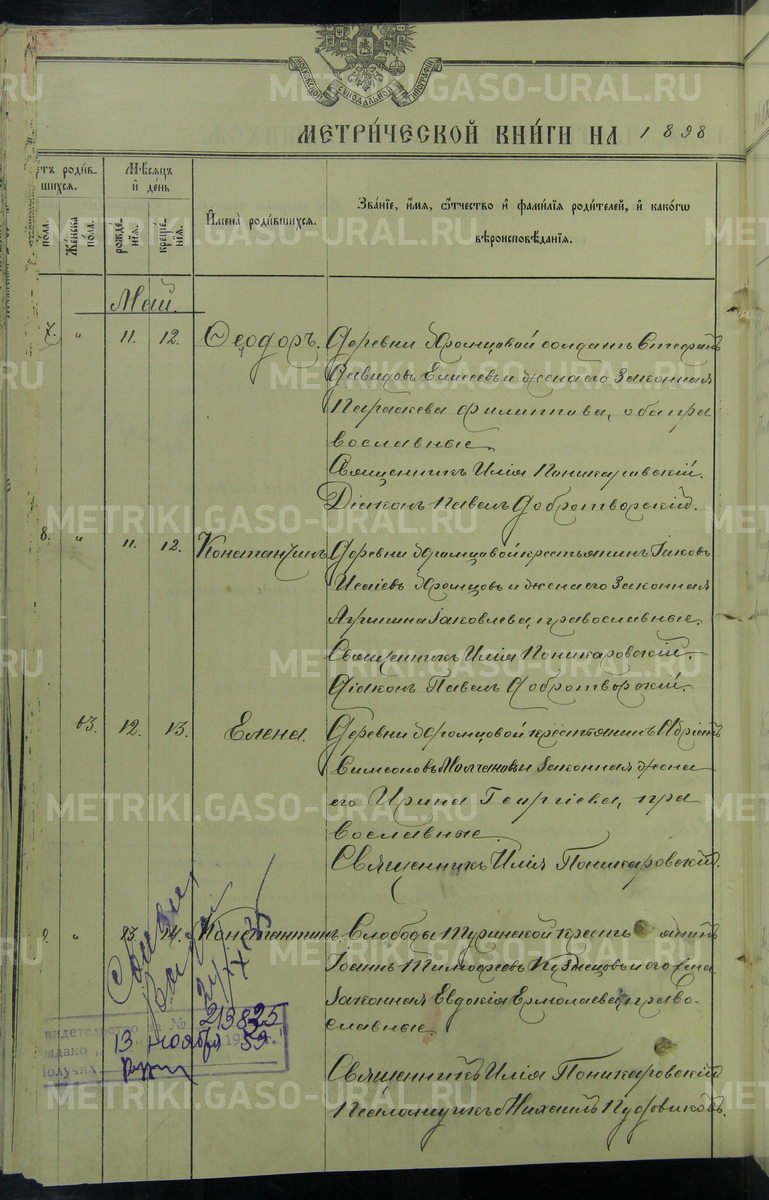 МОСКОВСКОЙ СѴНОДАЛЬНОЙ ТИПОГРАФІИ
МЕТРИ́ЧЕСКОЙ КНИ́ГИ НА 1898
етъ роди́в-
шихся.
Мѣ́сяцъ
и҆ де́нь
И҆мена̀ роди́вшихся.
Зва́нїе, и҆́мя, ѻ҆́тчество и҆ фами́лїя роди́телей, и҆ какогѡ
вѣроисповѣ́данїя.
по́ла.
Же́нска
по́ла.
рожде́-
нїя.
креще́-
нїя.
Май.
7. " 11. 12. Ѳеодоръ. Деревни Храмцовой солдатъ Стефанъ
Давидовъ Елисеевъ и жена его законная
Параскева Филиппова, оба пра
вославные
Священникъ Илія Поникаровскій.
Діаконъ Павелъ Добротворскій.
8. " 11. 12. Константинъ Деревни Храмцовой крестьянинъ Іаковъ
Исаіевъ Храмцовъ и жена его законная
Агрипина Іаковлева, православные.
Священникъ Илія Поникаровскій.
Діаконъ Павелъ Добротворскій.
13. 12. 13. Елена. Деревни Храмцовой крестьянинъ
Симеоновъ Молчановъ и законная жена
его Ирина Георгіева, пра
вославные
Священникъ Илія Поникаровскій.
9. " 23. 24. Константинъ. Слободы Туринской крестьянинъ
Іоаннъ Тимофеевъ Кузнецовъ и его жена
законная Евдокія Ермолаева, право-
славные.
Священникъ Илія Поникаровскій
Псаломщикъ Михаилъ
видетельство № 213825
ыдано 13 ноября 1953 г.
олучил
METRIKI.GASO-URAL.RU